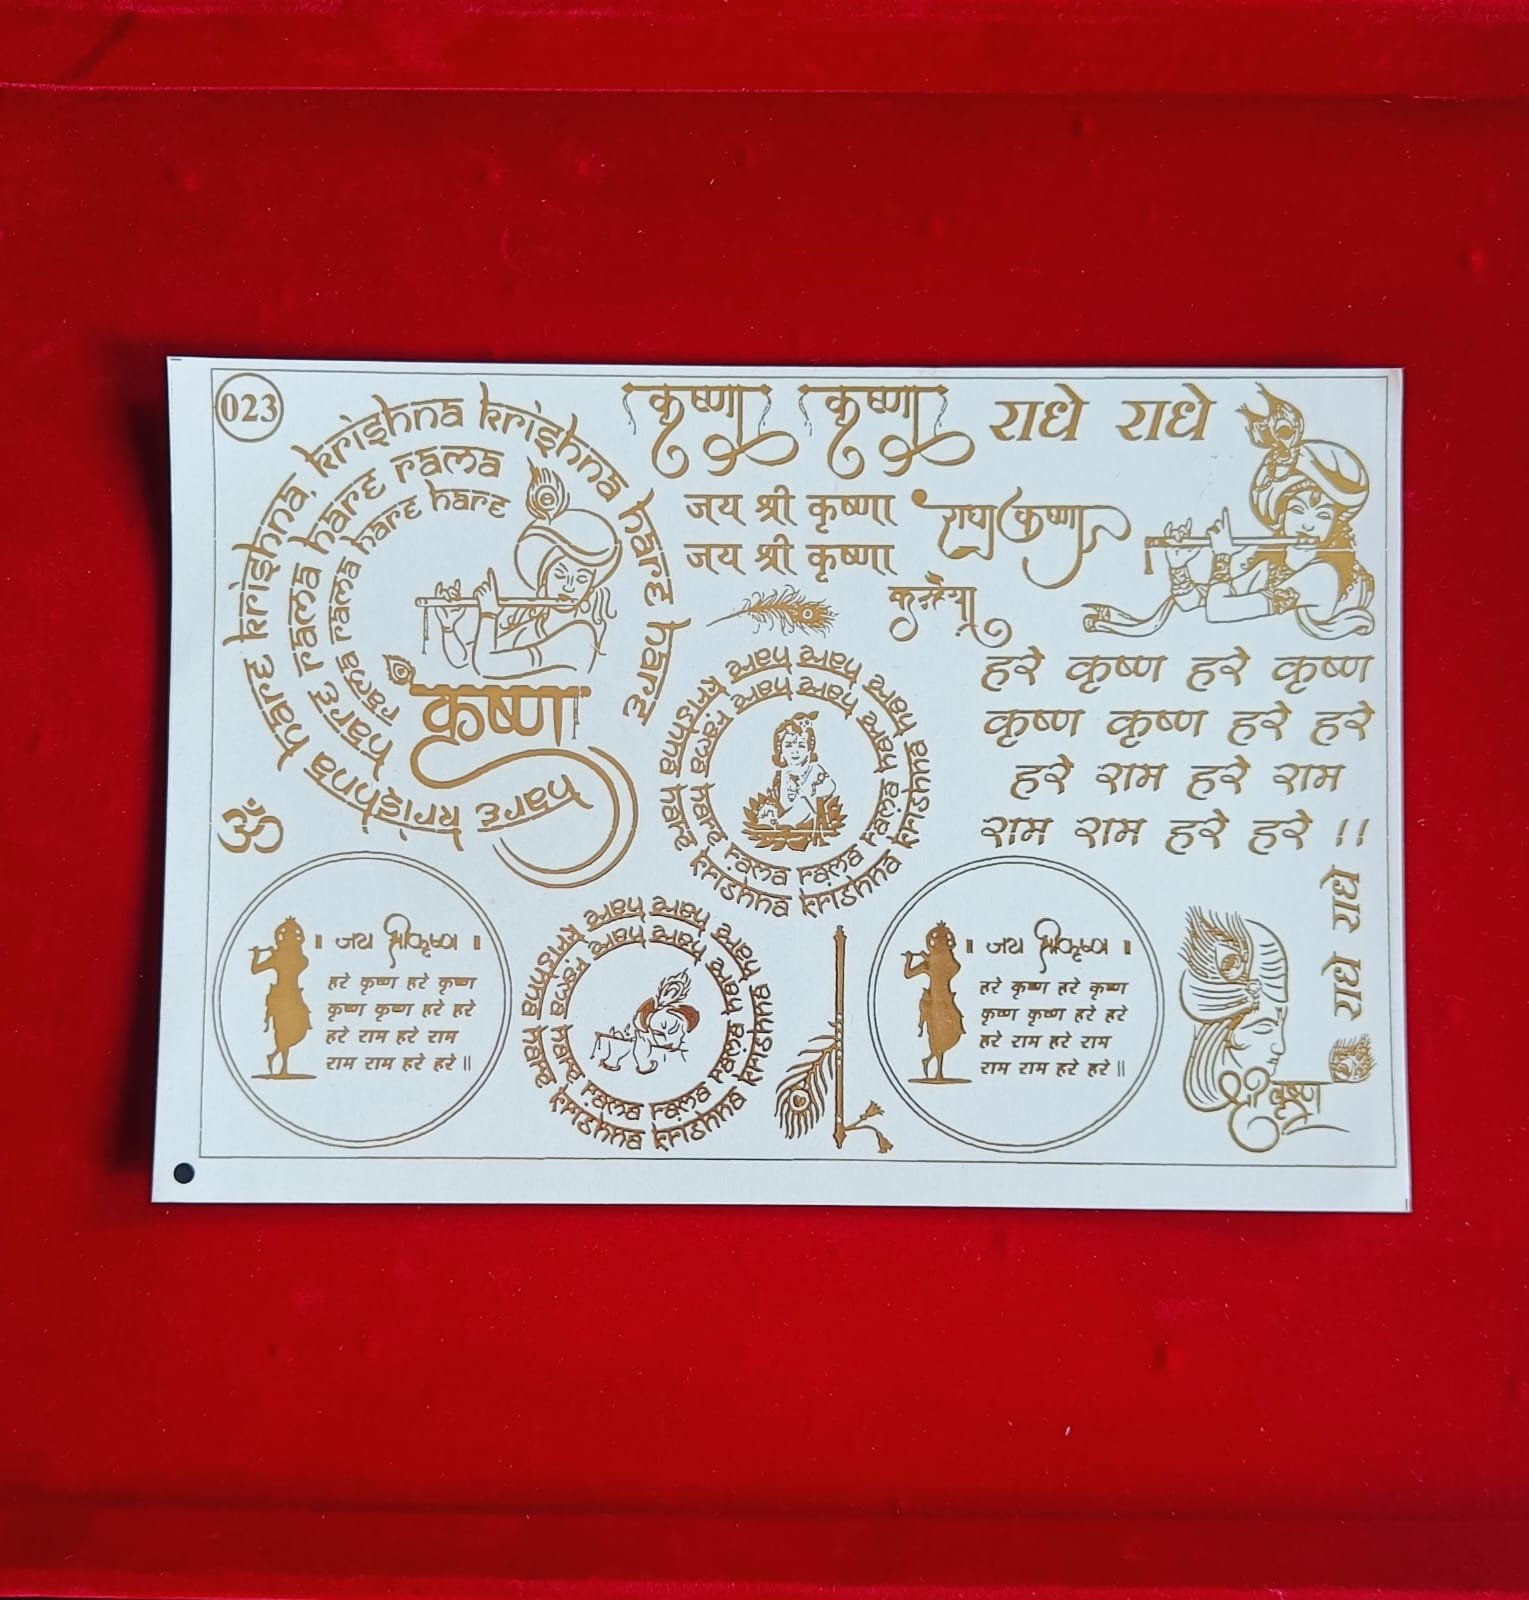 023
krishna krishna hare hare
hare krishna hare krishna,
hare rama hare rama
rama rama hare hare
कृष्णा
कृष्णा
राधे राधे
जय श्री कृष्णा
जय श्री कृष्णा
राधाकृष्णा
कन्हैया
कृष्णा
ॐ
हरे कृष्ण हरे कृष्ण
कृष्ण कृष्ण हरे हरे
हरे राम हरे राम
राम राम हरे हरे !!
hare krishna hare krishna
krishna krishna hare hare
hare rama hare rama
rama rama hare hare
॥ जय श्रीकृष्ण ॥
हरे कृष्ण हरे कृष्ण
कृष्ण कृष्ण हरे हरे
हरे राम हरे राम
राम राम हरे हरे ॥
hare krishna hare krishna
krishna krishna hare hare
hare rama hare rama
rama rama hare hare
॥ जय श्रीकृष्ण ॥
हरे कृष्ण हरे कृष्ण
कृष्ण कृष्ण हरे हरे
हरे राम हरे राम
राम राम हरे हरे ॥
राधे राधे
श्री कृष्ण